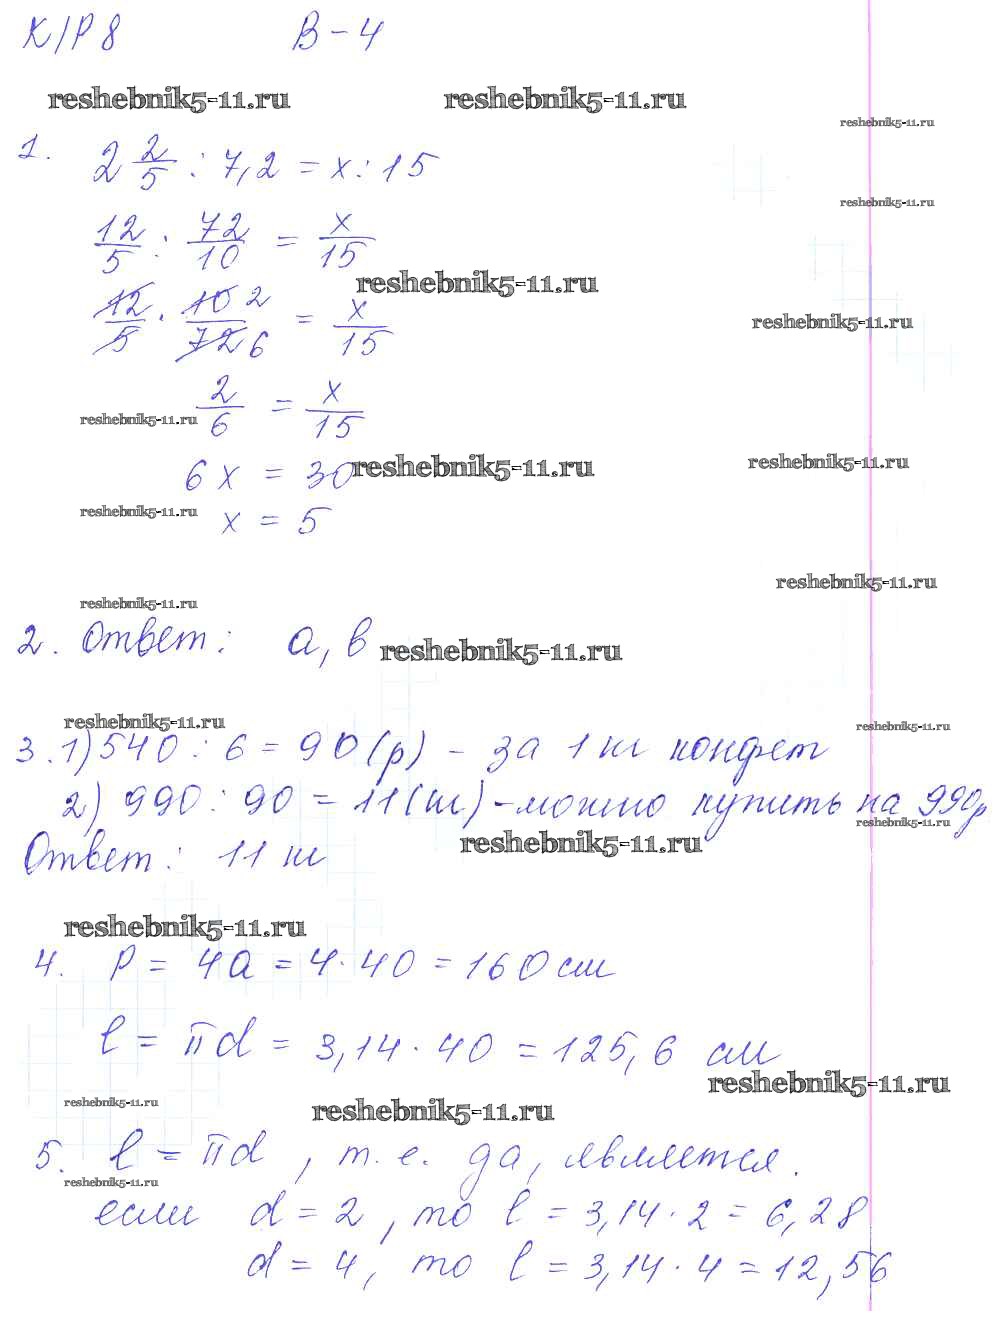 К/Р 8 В-4
reshebnik5-11.ru reshebnik5-11.ru
reshebnik5-11.ru
1. 2 2/5 : 7,2 = x : 15
reshebnik5-11.ru
12/5 : 72/10 = x/15
reshebnik5-11.ru
12/5 · 10 2/72 6 = x/15
reshebnik5-11.ru
2/6 = x/15
reshebnik5-11.ru
6x = 30
reshebnik5-11.ru reshebnik5-11.ru
x = 5
reshebnik5-11.ru
reshebnik5-11.ru
reshebnik5-11.ru
2. Ответ: а, в
reshebnik5-11.ru
reshebnik5-11.ru reshebnik5-11.ru
3. 1) 540 : 6 = 90 (р) - за 1 кг конфет
2) 990 : 90 = 11 (кг) - можно купить на 990р
reshebnik5-11.ru
Ответ: 11 кг
reshebnik5-11.ru
reshebnik5-11.ru
4. P = 4a = 4·40 = 160 см
l = πd = 3,14·40 = 125,6 см
reshebnik5-11.ru
reshebnik5-11.ru reshebnik5-11.ru
5. l = πd, т.е. да, является.
reshebnik5-11.ru
если d = 2, то l = 3,14·2 = 6,28
d = 4, то l = 3,14·4 = 12,56